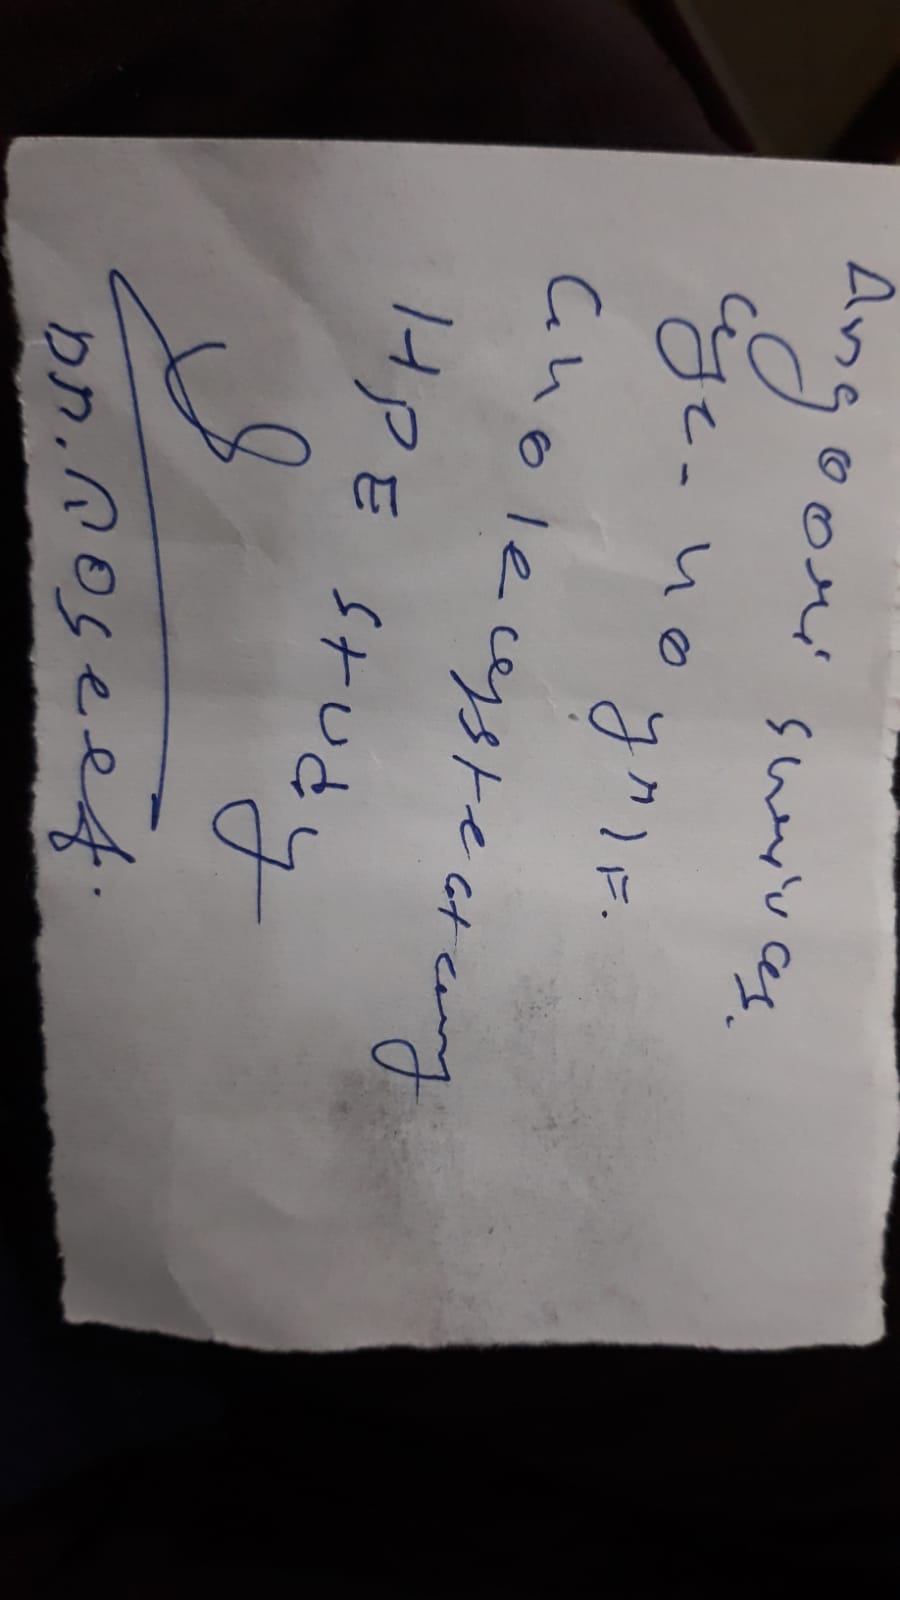 Angoori surives.
age - 40 yr / F.
Cholecystectomy
HPE study
Dr. Noseef.